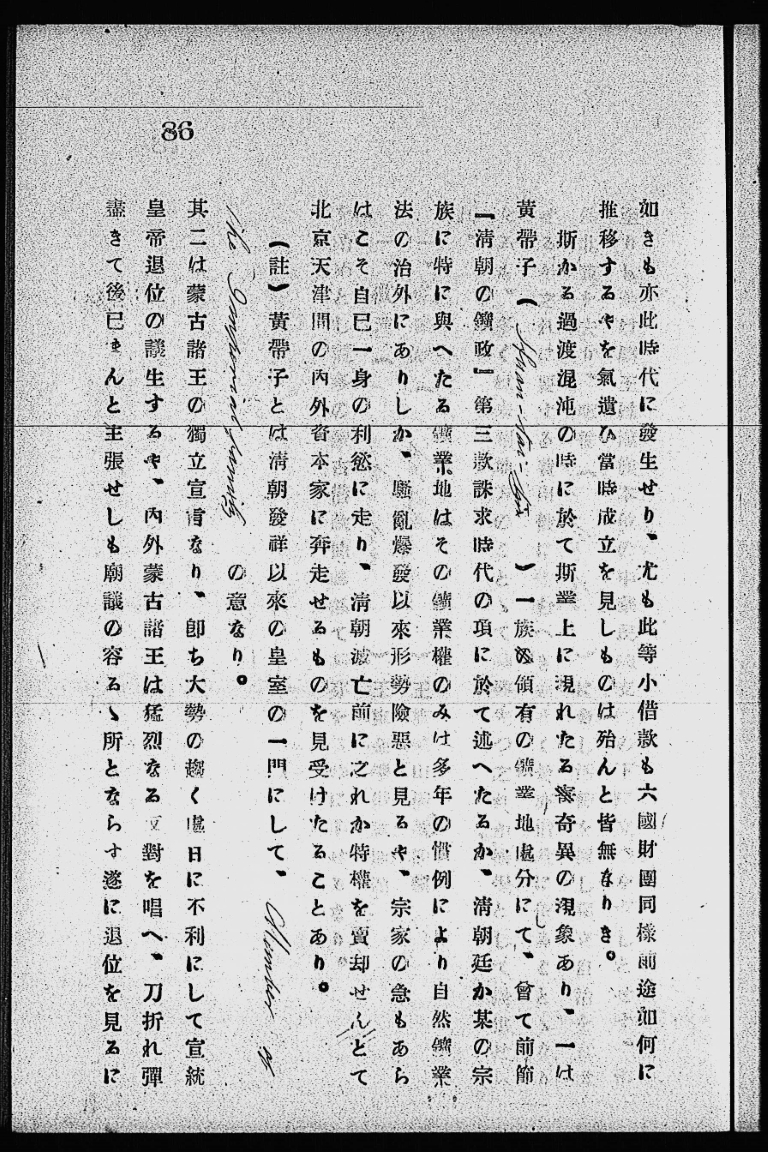 86
如きも亦此時代に發生せり、尤も此等小借款も六國財團同樣前途如何に
推移するやを氣遣ひ當時成立を見しものは殆んと皆無なりき。
斯かる過渡混沌の時に於て斯業上に現れたる奇異の現象あり、一は
黃帶子（ ）一族の領有の鑛業地處分にて、曾て前節
『淸朝の鑛政』第三款誅求時代の項に於て述へたるか、淸朝廷か某の宗
族に特に與へたる鑛業地はその鑛業權のみは多年の慣例により自然鑛業
法の治外にありしか、騷亂爆發以來形勢險惡と見るや、宗家の急もあら
はこそ自已一身の利慾に走り、淸朝滅亡前に之れか特權を賣却せんとて
北京天津間の內外資本家に奔走せるものを見受けたることあり。
（註）黃帶子とは淸朝發祥以來の皇室の一門にして、Member of
The Imperial family の意なり。
其二は蒙古諸王の獨立宣言なり、卽ち大勢の趨く處日に不利にして宣統
皇帝退位の議生するや、內外蒙古諸王は猛烈なる反對を唱へ、刀折れ彈
盡きて後已まんと主張せしも廟議の容るゝ所とならす遂に退位を見るに